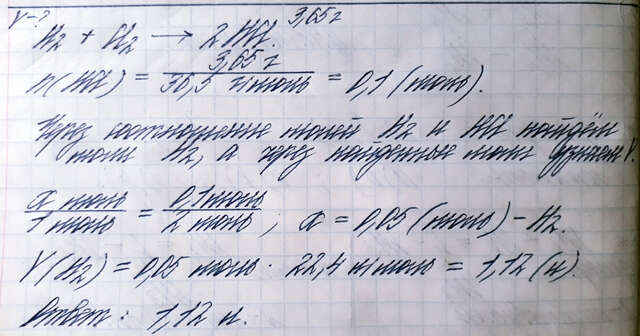 V-?
3,65 г
H2 + Cl2 → 2HCl.
n(HCl) = 3,65 г / 36,5 г/моль = 0,1 (моль).
Через соотношение молей H2 и HCl найдём
моли H2, а через найденные моли узнаем V.
x моль / 1 моль = 0,1 моль / 2 моль ; x = 0,05 (моль) – H2.
V(H2) = 0,05 моль · 22,4 л/моль = 1,12 (л).
Ответ: 1,12 л.